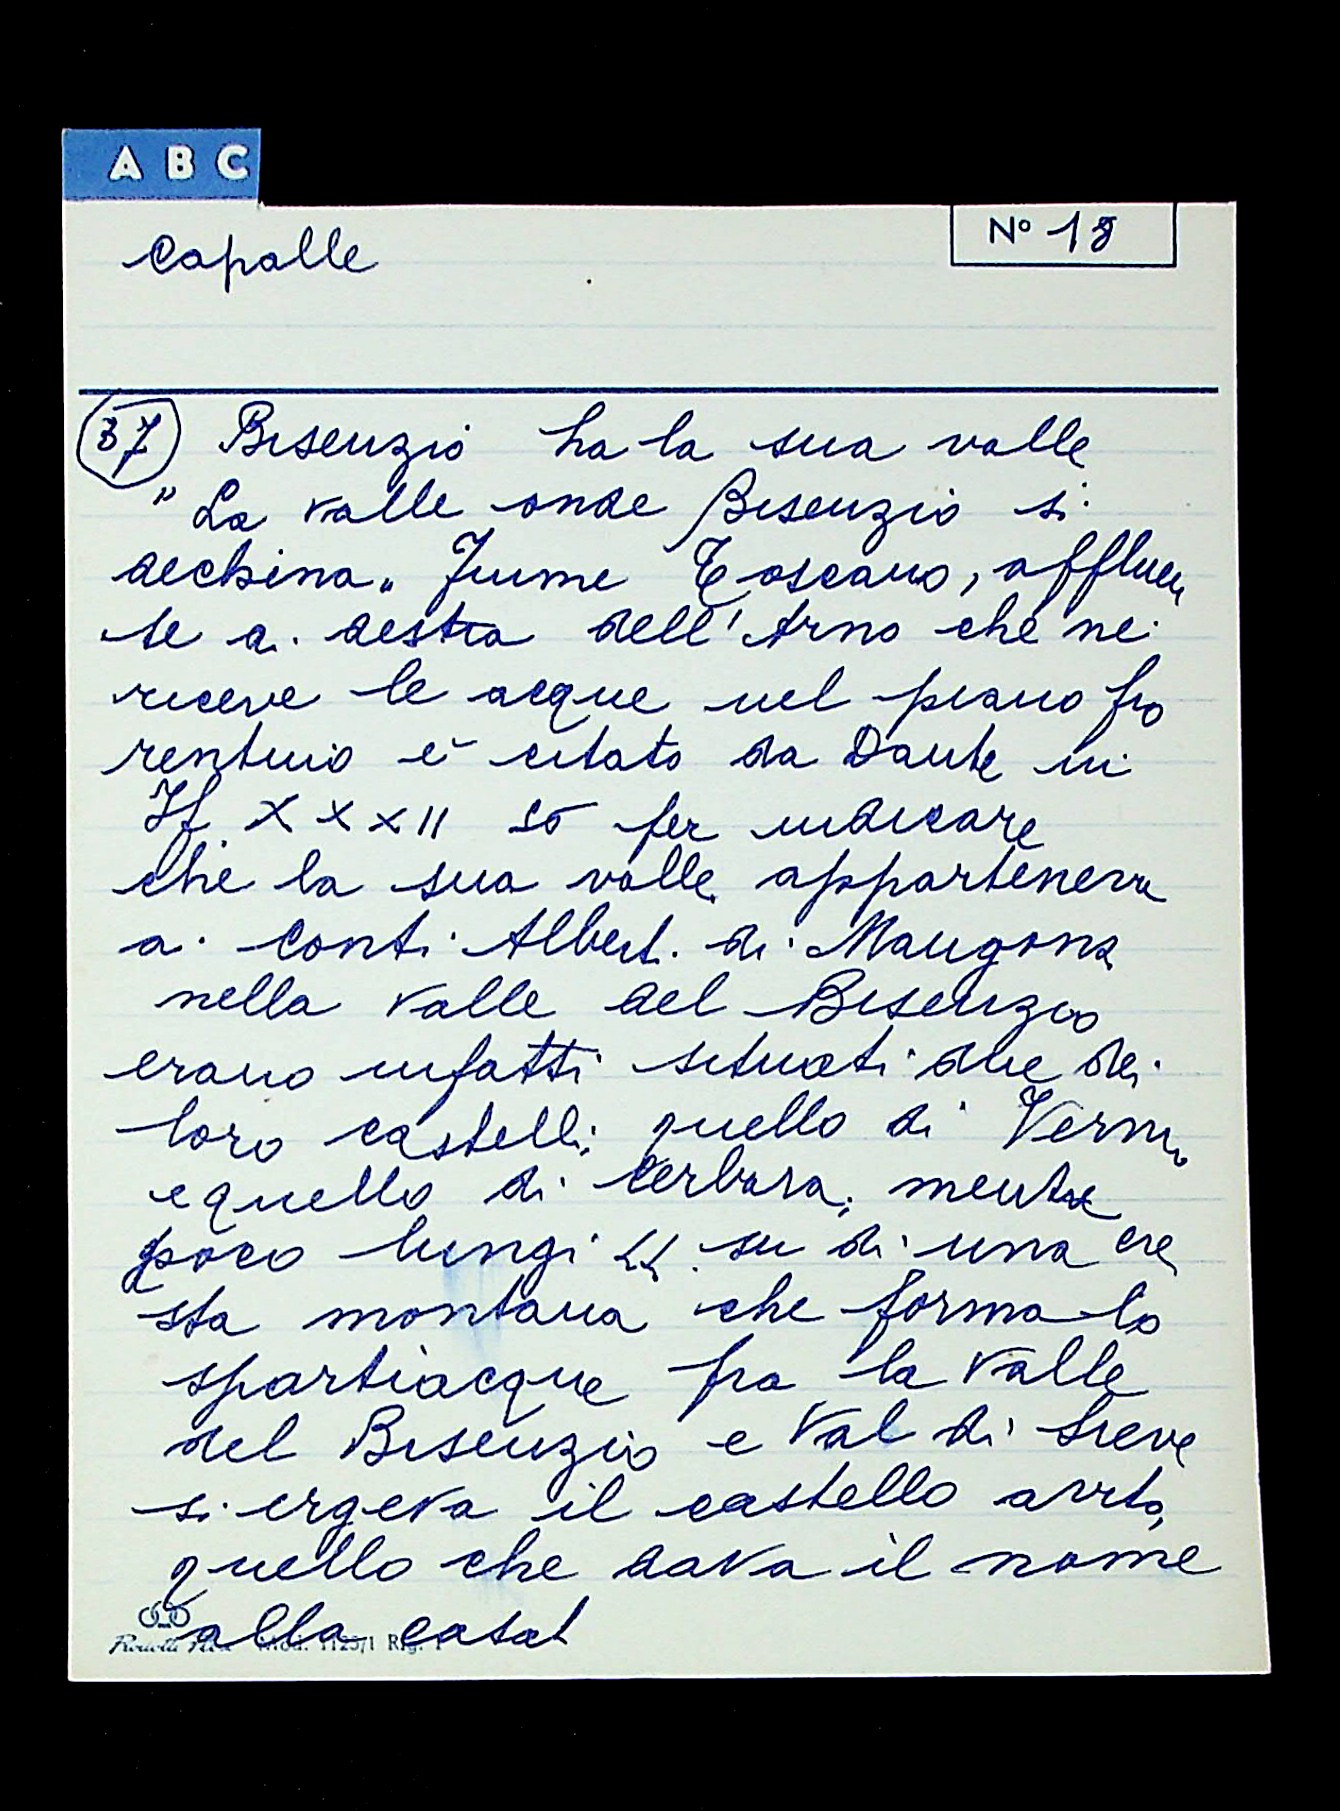 ABC
Capalle
N° 18
37 Bisenzio ha la sua valle
"La valle onde Bisenzio si
dechina" Fiume Toscano, affluen
te di destra dell'Arno che ne
riceve le acque nel piano fio
rentino è citato da Dante in
If XXXII 56 per indicare
che la sua valle apparteneva
ai Conti Alberti di Mangona
nella valle del Bisenzio
erano infatti situati due dei
loro castelli; quello di Vernio
e quello di Cerbaia; mentre
poco lungi su di una cre
sta montana che forma lo
spartiacque fra la valle
del Bisenzio e Val di Sieve
si ergeva il castello avito,
quello che dava il nome
alla casat
Mod. 1125/1 Rig.